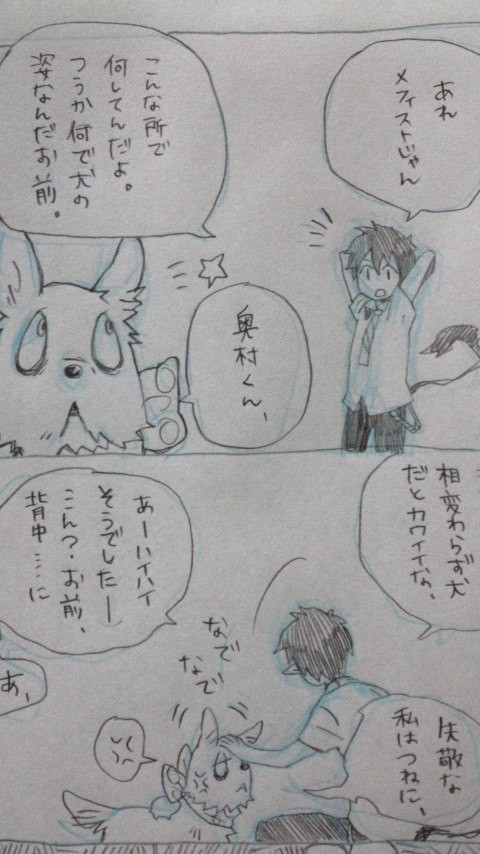 あれ
メフィストじゃん
こんな所で
何してんだよ。
つうか何で犬の
姿なんだお前。
奥村くん、
相変わらず犬
だとカワイイな、
失敬な
私はつねに、
なで
なで
あーハイハイ
そうでしたー
こん?・お前、
背中……に
あ、